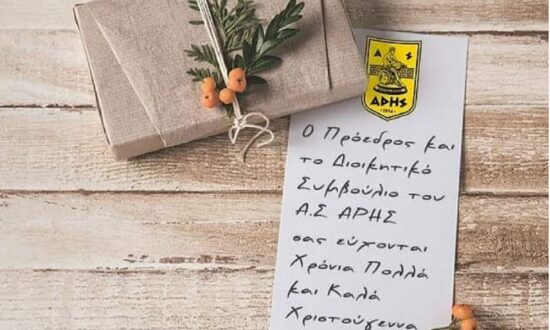 Α Σ
ΑΡΗΣ
1914
Ο Πρόεδρος και
το Διοικητικό
Συμβούλιο του
Α.Σ ΑΡΗΣ
σας εύχονται
Χρόνια Πολλά
και Καλά
Χριστούγεννα